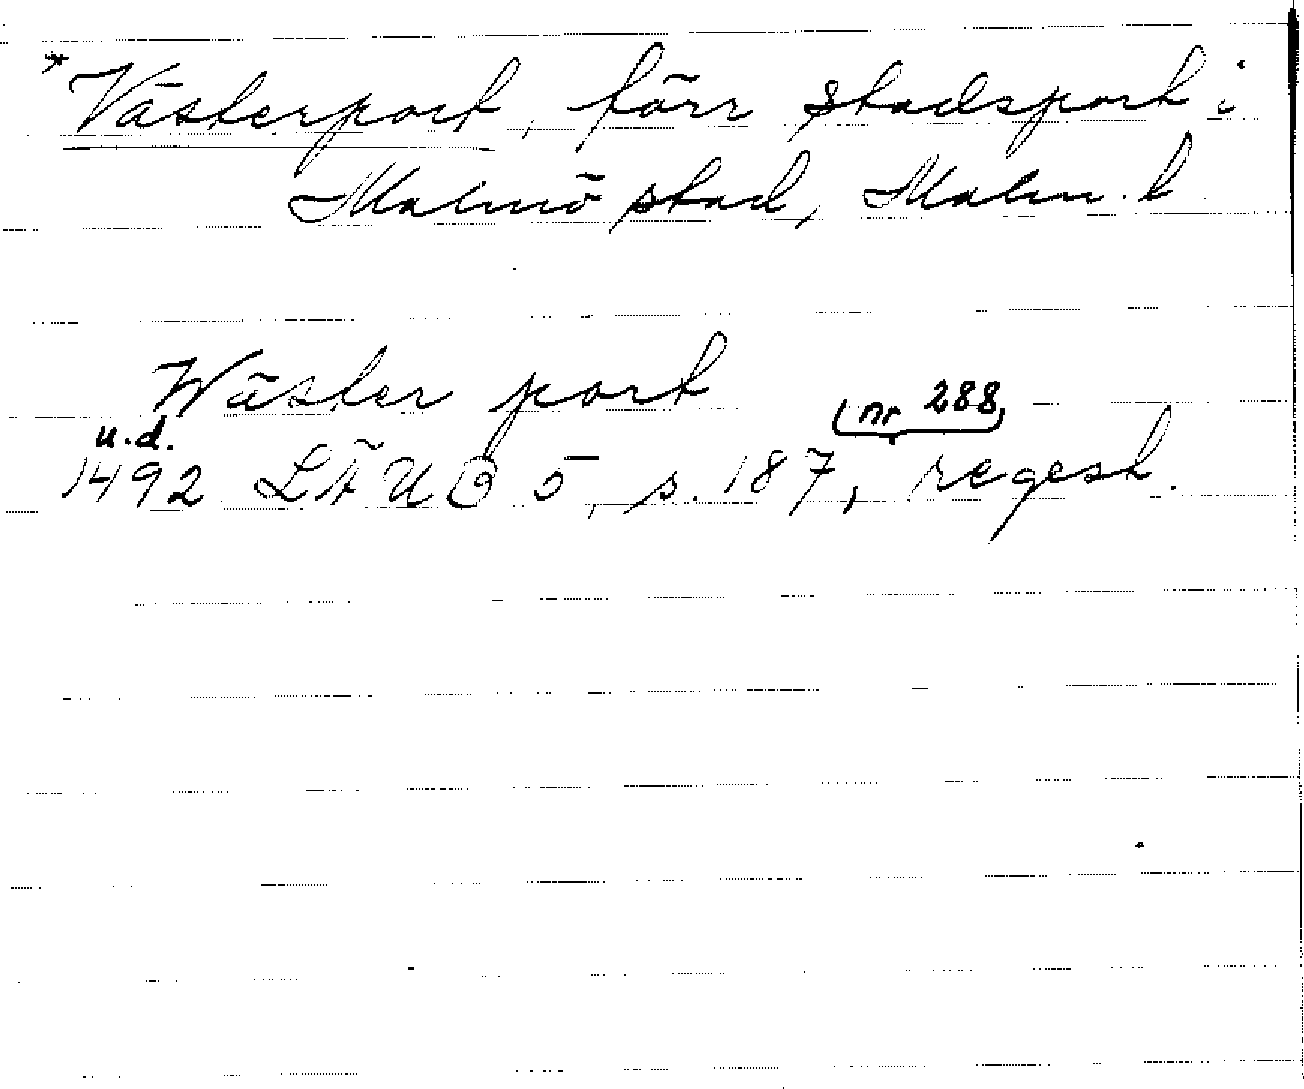 *Västerport, förr stadsport i
Malmö stad, Malm. l
Wäster port
(nr 288)
u.d.
1492 LÄUB 5, s. 187, regest.